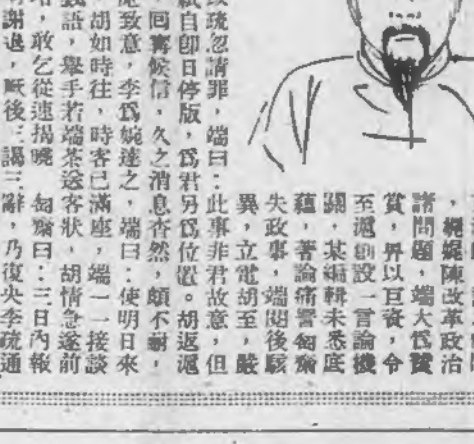 ，娓娓陳改革政治
諸問題，端大爲贊
賞，畀以巨資，令
至滬創設一言論機
關，某編輯未悉底
蘊，著論痛詈匋齋
失政事，端閱後駭
異，立電胡至，嚴
疏忽請罪，端曰：此事非君故意，但
紙自即日停版，爲君另爲位置。胡返滬
回寓候信，久之消息杳然，頗不耐，
致意，李爲婉達之，端曰：使明日來
胡如時往，時客已滿座，端一一接談
語，舉手若端茶送客狀，胡情急遂前
，敢乞從速揭曉　匋齋曰：三日內報
謝退，厥後三謁三辭，乃復央李疏通